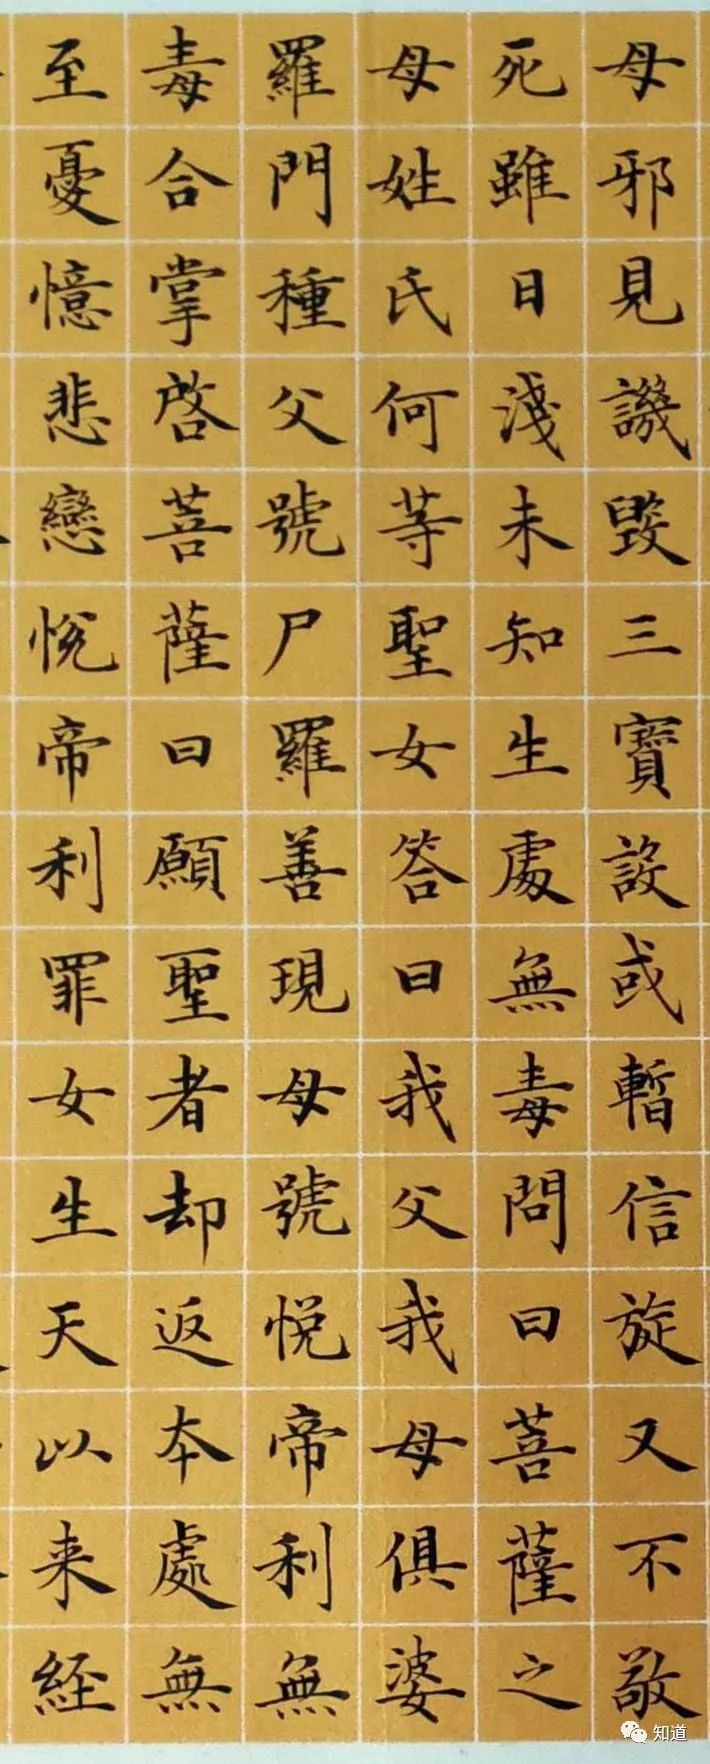 母邪見譏毀三寶設或暫信旋又不敬
死雖日淺未知生處無毒問曰菩薩之
母姓氏何等聖女答曰我父我母俱婆
羅門種父號尸羅善現母號悅帝利無
毒合掌啓菩薩曰願聖者却返本處無
至憂憶悲戀悅帝利罪女生天以来経
知道